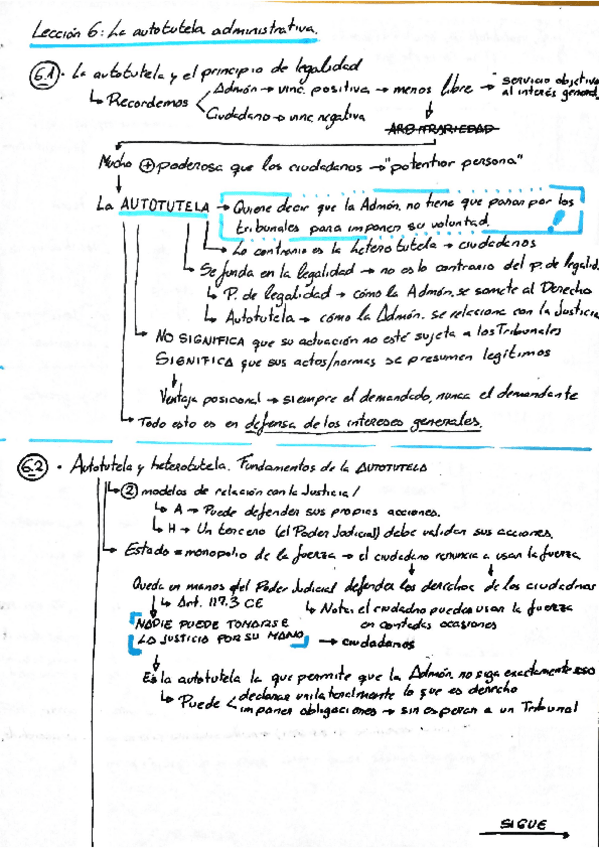 Lección 6: La autotutela administrativa.
6.1 · La autotutela y el principio de legalidad
↳ Recordemos < Admón → vinc. positiva → menos libre → servicio objetivo al interés general
Ciudadano → vinc. negativa
ARBITRARIEDAD
Mucho ⊕ poderosa que los ciudadanos → "potentior persona"
La AUTOTUTELA → Quiere decir que la Admón. no tiene que pasar por los
tribunales para imponer su voluntad. !
↳ Lo contrario es la heterotutela → ciudadanos
↳ Se funda en la legalidad → no es lo contrario del p. de legalid.
↳ P. de legalidad → cómo la Admón. se somete al Derecho
↳ Autotutela → cómo la Admón. se relaciona con la Justicia
→ NO SIGNIFICA que su actuación no esté sujeta a los Tribunales
SIGNIFICA que sus actos/normas se presumen legítimos
Ventaja posicional → siempre el demandado, nunca el demandante
→ Todo esto es en defensa de los intereses generales.
6.2 · Autotutela y heterotutela. Fundamentos de la AUTOTUTELA
↳ ② modelos de relación con la Justicia /
↳ A → Puede defender sus propias acciones.
↳ H → Un tercero (el Poder Judicial) debe validar sus acciones.
→ Estado = monopolio de la fuerza → el ciudadano renuncia a usar la fuerza
Queda en manos del Poder Judicial defender los derechos de los ciudadnos
↳ Art. 117.3 CE ↳ Nota: el ciudadno pueden usar la fuerza
en contadas ocasiones
NADIE PUEDE TOMARSE
LA JUSTICIA POR SU MANO → ciudadanos
Es la autotutela la que permite que la Admón. no siga exactamente eso
↳ Puede < declarar unilateralmente lo que es derecho
imponer obligaciones → sin esperar a un Tribunal
SIGUE